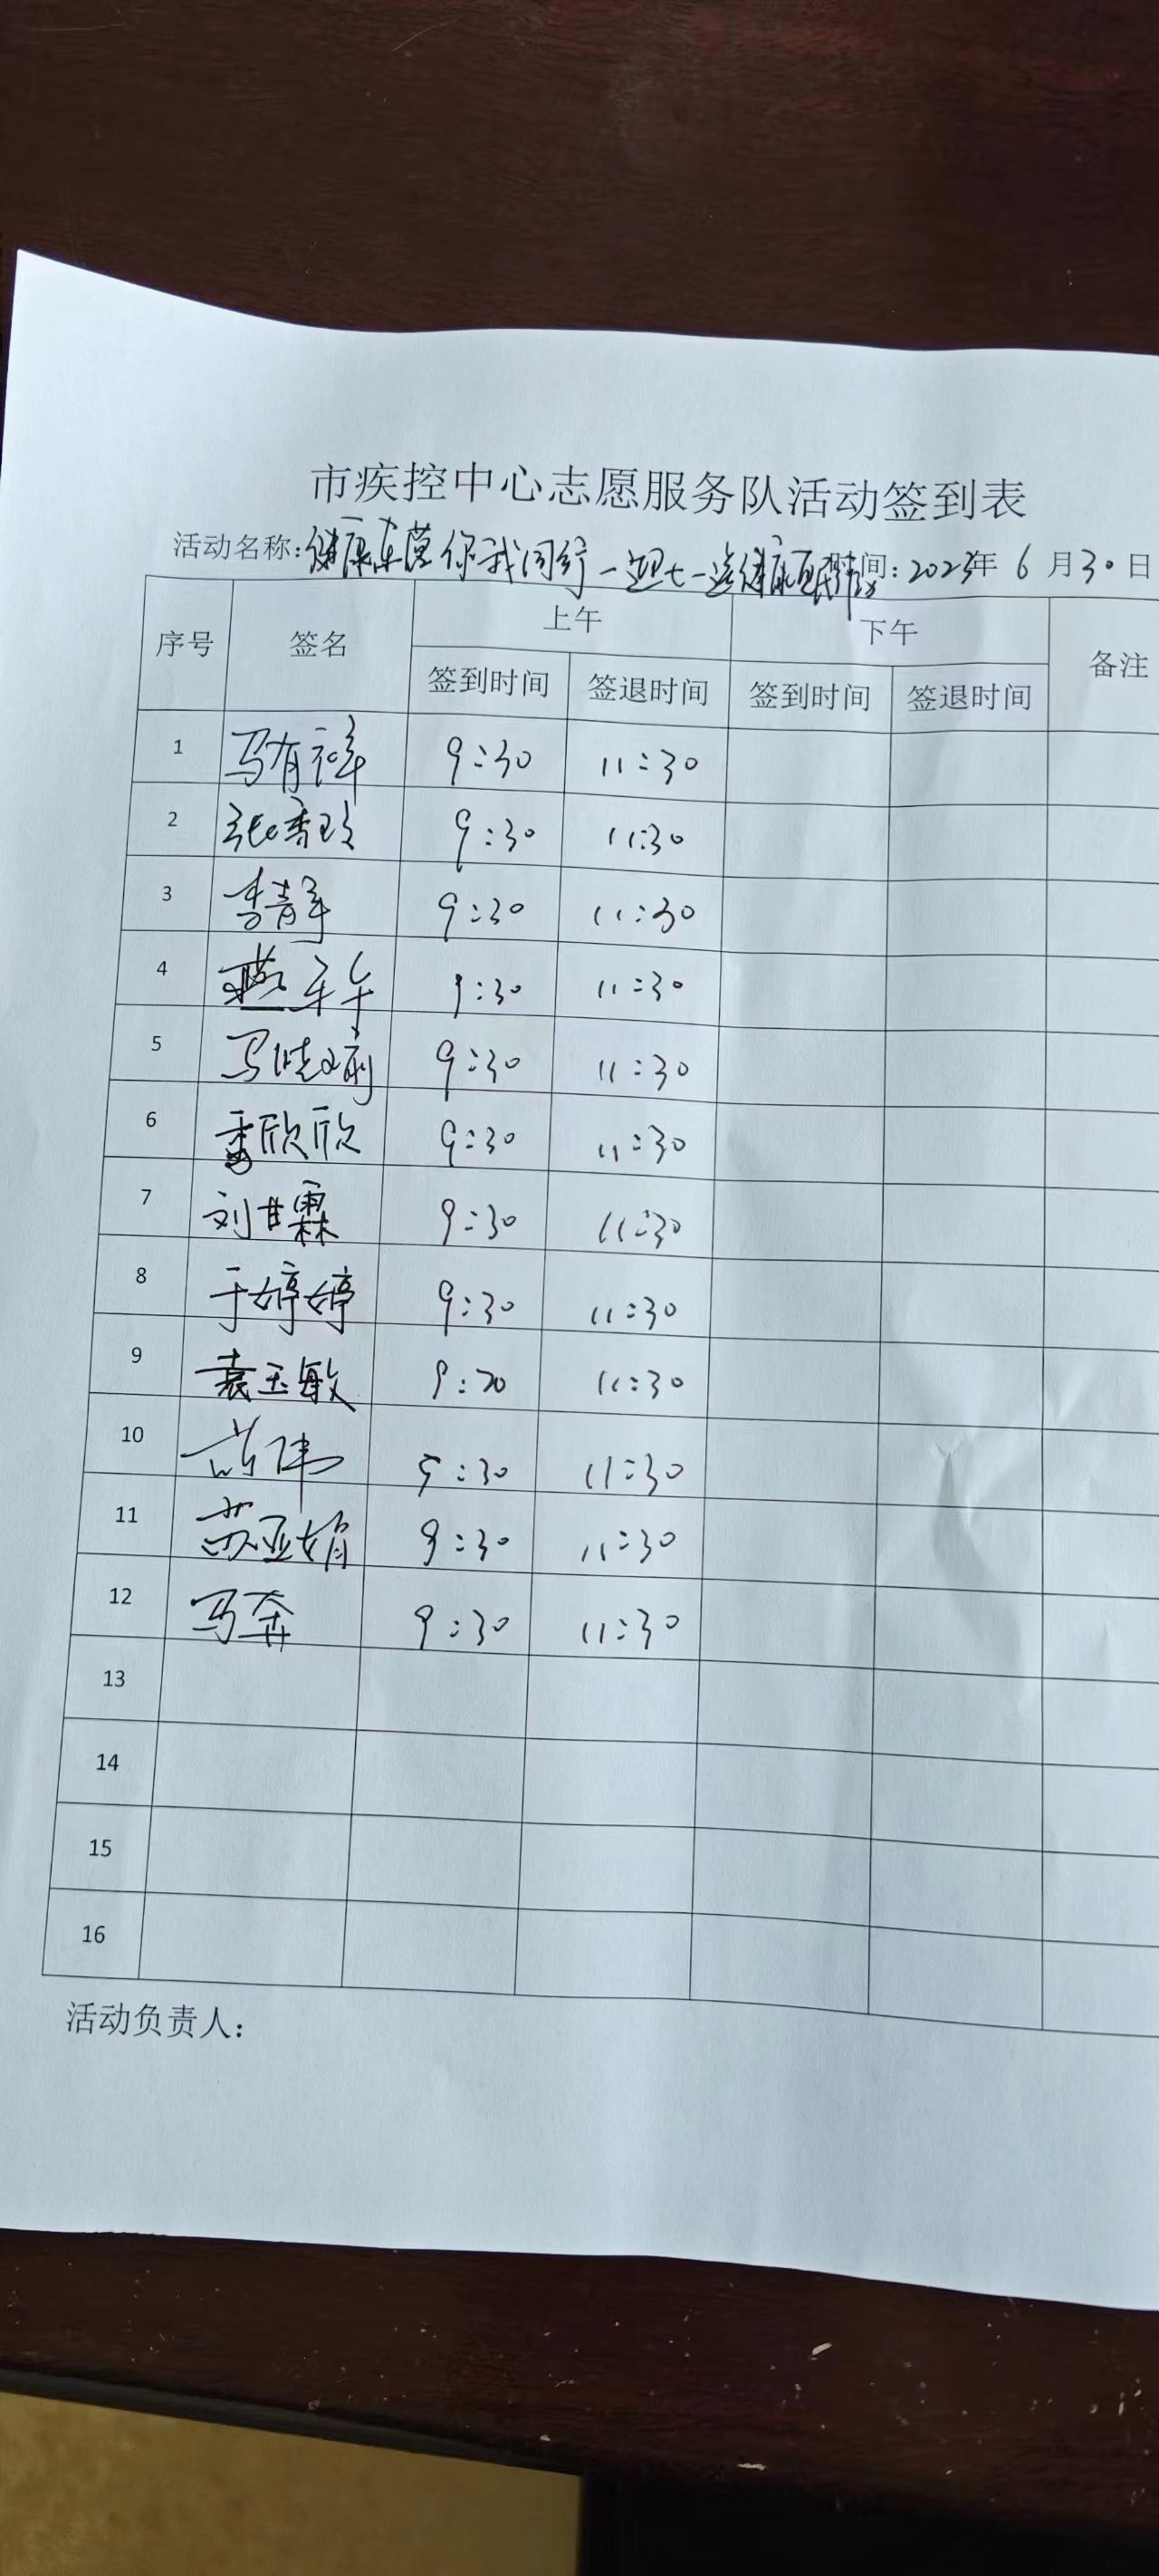 市疾控中心志愿服务队活动签到表
活动名称:健康东营你我同行一迎七一送健康 时间:2023年 6 月30日
序号 签名 上午 下午 备注
签到时间 签退时间 签到时间 签退时间
1 马有祥 9:30 11:30
2 张秀玲 9:30 11:30
3 李青年 9:30 11:30
4 9:30 11:30
5 马晓丽 9:30 11:30
6 季欣欣 9:30 11:30
7 刘甘霖 9:30 11:30
8 于婷婷 9:30 11:30
9 袁玉敏 9:30 11:30
10 9:30 11:30
11 苏亚娟 9:30 11:30
12 马奔 9:30 11:30
13
14
15
16
活动负责人: